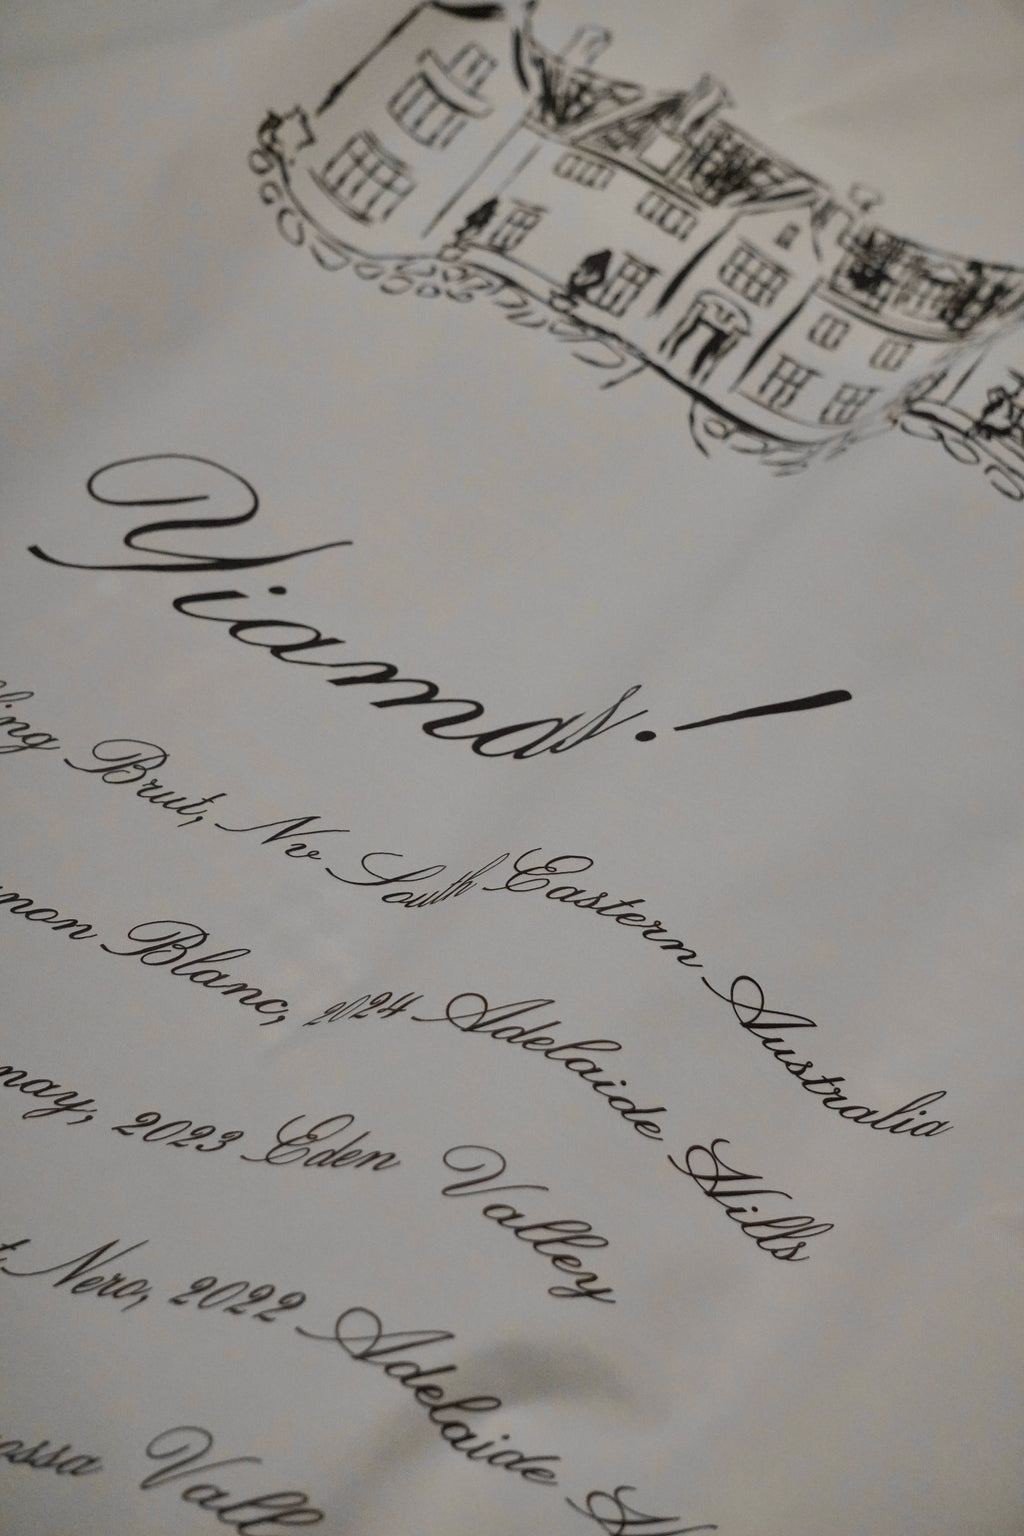 Yiamas!
ling Brut, Nv South Eastern Australia
non Blanc, 2024 Adelaide Hills
nay, 2023 Eden Valley
t Nero, 2022 Adelaide H
ossa Vall